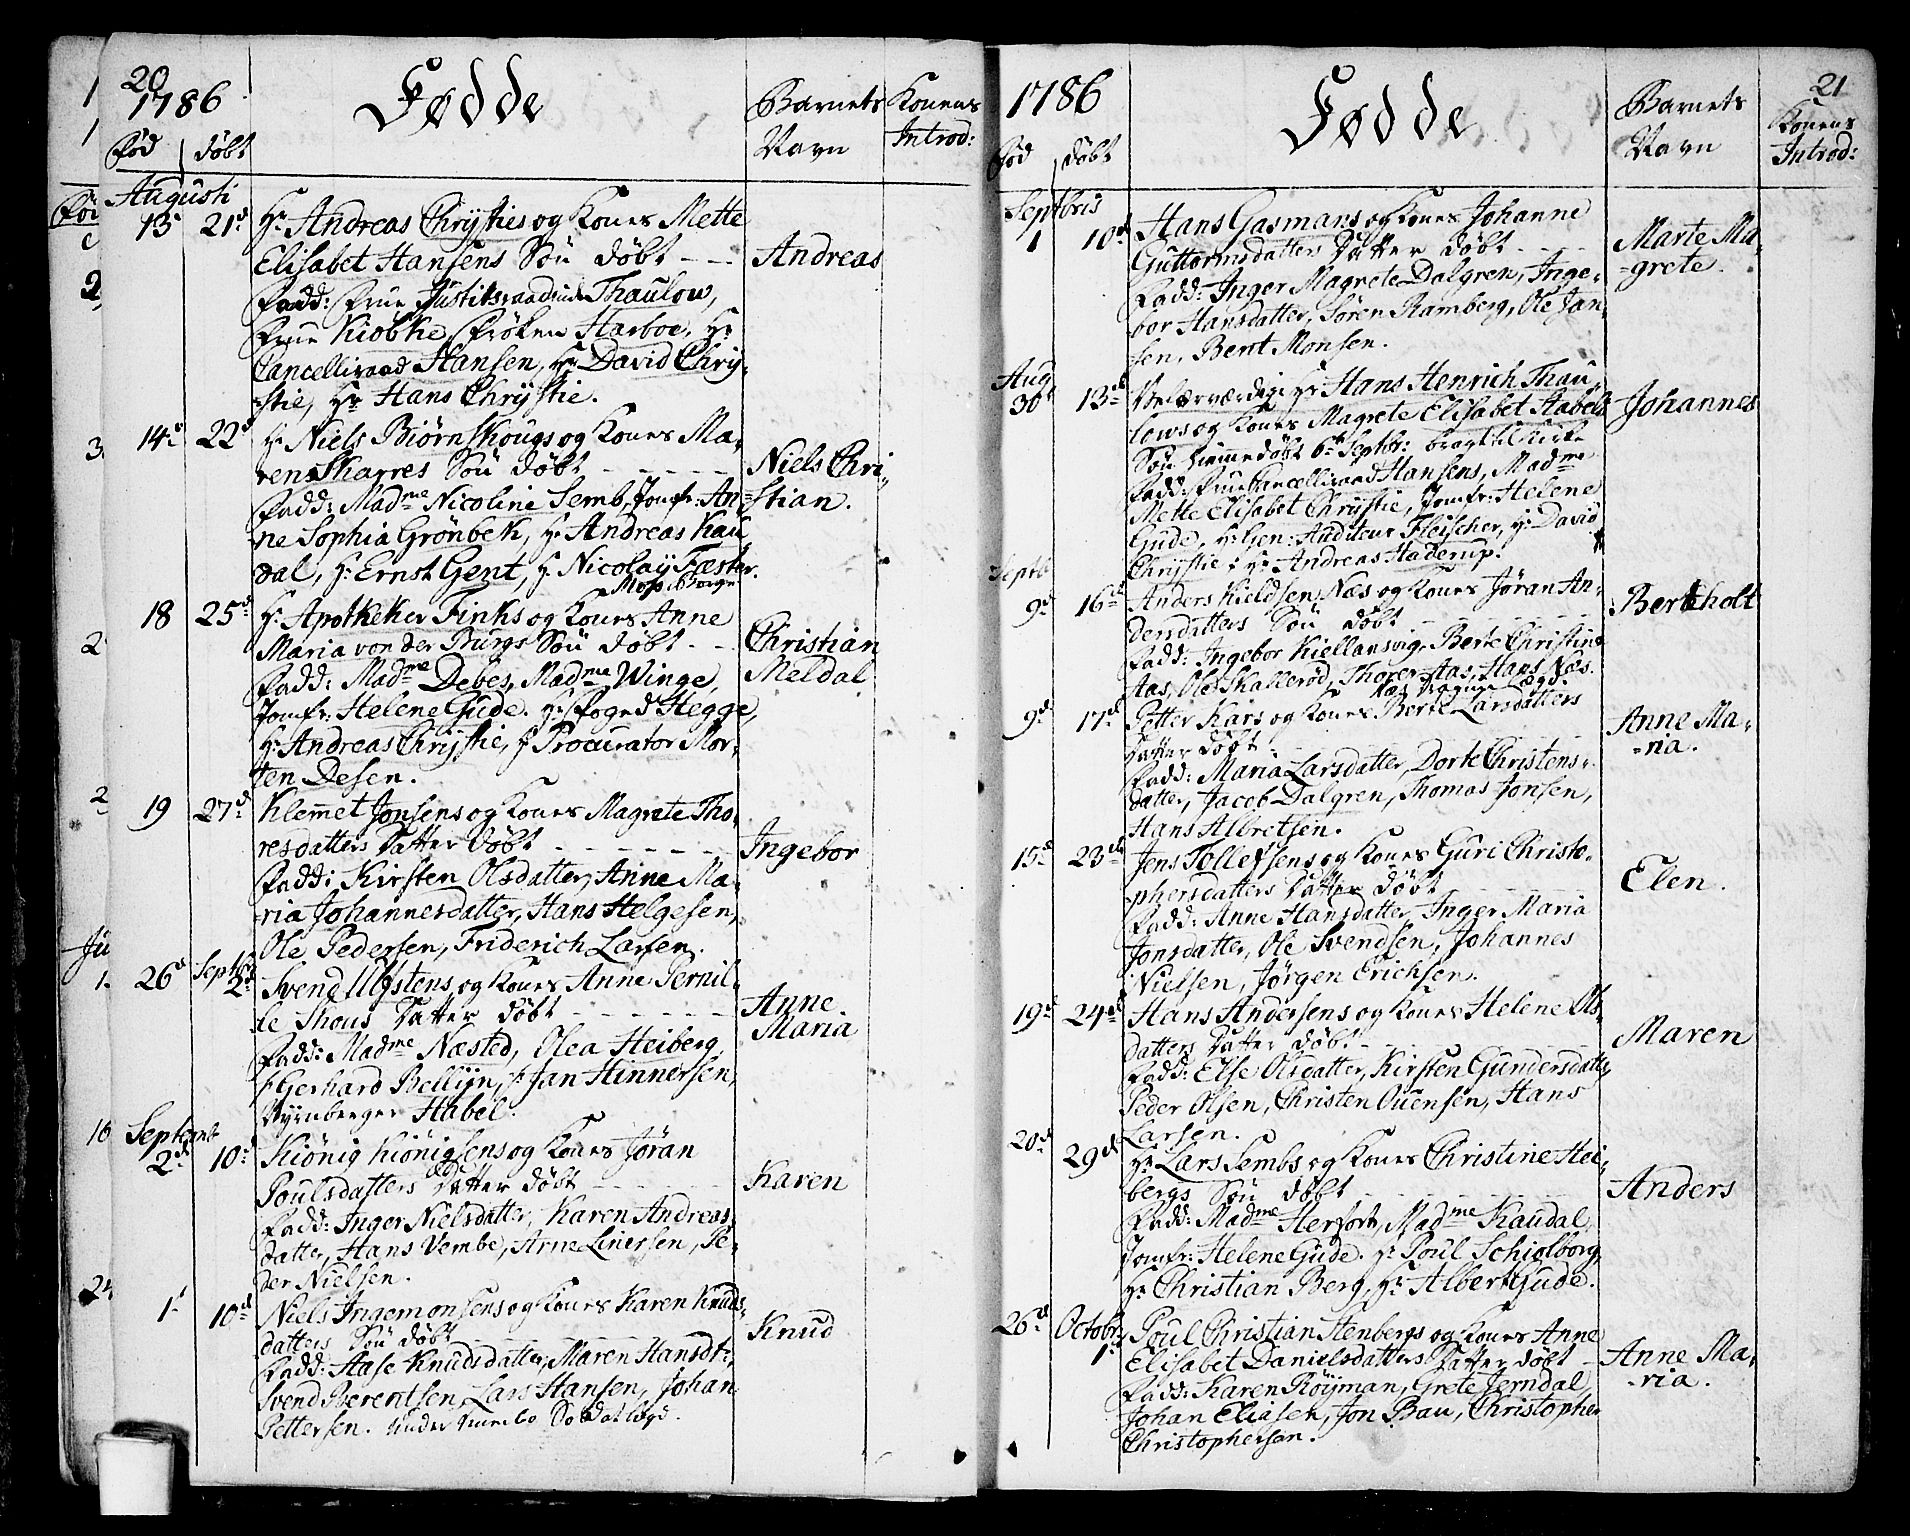 20
1786
Fødde
Barnets
Navn
Konens
Introd:
Fød
døbt
Augusti
13
21d
Hr Andreas Chrÿsties og Kones Mette
Elisabet Hansens Søn døbt
Andreas
Fadd: Frue Justitsraadinde Thaulow,
Frue Kiøbke, Frøken Harboe, Hr
Cancelliraad Hansen, Hr David Chrÿ-
stie, Hr Hans Chrÿstie.
14d
22d
Hr Niels Biørnskougs og Kones Ma-
rens Skarres Søn døbt
Niels Chri-
stian.
Fadd: Madme Nicoline Semb, Jomfr: An-
ne Sophia Grønbek, Hr Andreas Kau
dal, Hr Ernst Gent, Hr Nicolaÿ Fæster.
18
25d
Hr Apotheker Finks og Kones Anne
Maria von der Burgs Søn døbt
Christian
Meldal
Fadd: Madme Debes, Madme Winge,
Jomfr: Helene Gude. Hr Foged Hegge,
Hr Andreas Chrÿstie, Hr Procurator Mor-
ten Desen.
19
27d
Klemet Jonsens og Kones Magrete Tho-
resdatters Datter døbt
Ingebor
Fadd: Kirsten Olsdatter, Anne Ma-
ria Johannesdatter, Hans Helgesen,
Ole Pedersen, Friderich Larsen.
26d
Septbr
2d
Svend Ulfstens og Kones Anne Pernil-
le Thous Datter døbt
Anne
Maria
Fadd: Madme Næsted, Olea Heiberg
Hr Gerhard Bellÿn, Hr Jan Hinnersen,
Nÿrnberger Habel.
Septembr
2d
10d
Kiønig Kiønigsens og Kones Jøran
Poulsdatters Datter døbt
Karen
Fadd: Inger Nielsdatter, Karen Andreas
datter, Hans Vembe, Arne Linersen, Pe-
der Nielsen.
1d
10d
Niels Ingemonsens og Kones Karen Knuds-
datters Søn døbt
Knud
Fadd: Aase Knudsdatter, Maren Hansdtr,
Svend Berentsen, Lars Hansen, Johan
Pettersen.
21
1786
Fødde
Barnets
Navn
Konens
Introd:
Fød
døbt
Septbris
1
10d
Hans Gasmans og Kones Johanne
Guttormsdatters Datter døbt
Marte Ma-
grete.
Fadd: Inger Magrete Dalgren, Inge-
bor Hansdatter, Søren Ramberg, Ole Jan
sen, Bent Monsen.
Aug
30
13d
Velærværdige Hr Hans Henrich Thau-
lows og Kones Magrete Elisabet Stabels
Johannes
Søn hiemmedøbt 6te Septbr: bragt til Kirke
Fadd: Frue Cancelliraad Hansens, Madme
Mette Elisabet Chrÿstie, Jomfr: Helene
Gude, Hr Gen: Auditeur Fleischer, Hr David
Chrÿstie, Hr Andreas Haderup.
Septb
9d
16d
Anders Kieldsen Næs og Kones Jøran An-
dersdatters Søn døbt
Bertholt
Fadd: Ingebor Kiellansvig, Berte Christine
Aas, Ole Skallerød, Thorer Aas, Hans Næs.
9d
17d
Petter Kars og Kones Berte Larsdatters
Datter døbt
Anne Ma-
ria.
Fadd: Maria Larsdatter, Dorte Christens-
datter, Jacob Dalgren, Thomas Jonsen,
Hans Albretsen.
15d
23d
Jens Tollefsens og Kones Guri Christo-
phersdatters Datter døbt
Elen.
Fadd: Anne Hansdatter, Inger Maria
Jonsdatter, Ole Svendsen, Johannes
Nielsen, Jørgen Erichsen.
19d
24d
Hans Andersens og Kones Helene Ols-
datters Datter døbt
Maren
Fadd: Else Olsdatter, Kirsten Gundersdatter
Peder Olsen, Christen Ouensen, Hans
Larsen.
20d
29d
Hr Lars Sembs og Kones Christine Hei-
bergs Søn døbt
Anders
Fadd: Madme Herfort, Madme Kaudal,
Jomfr: Helene Gude. Hr Poul Schiolborg,
Hr Christian Berg, Hr Albert Gude.
26d
Octobr
1d
Poul Christian Stenbergs og Kones Anne
Elisabet Danielsdatters Datter døbt
Anne Ma-
ria.
Fadd: Karen Röÿman, Grete Jerndal
Johan Eliasen, Jon Bau, Christopher
Christophersen.